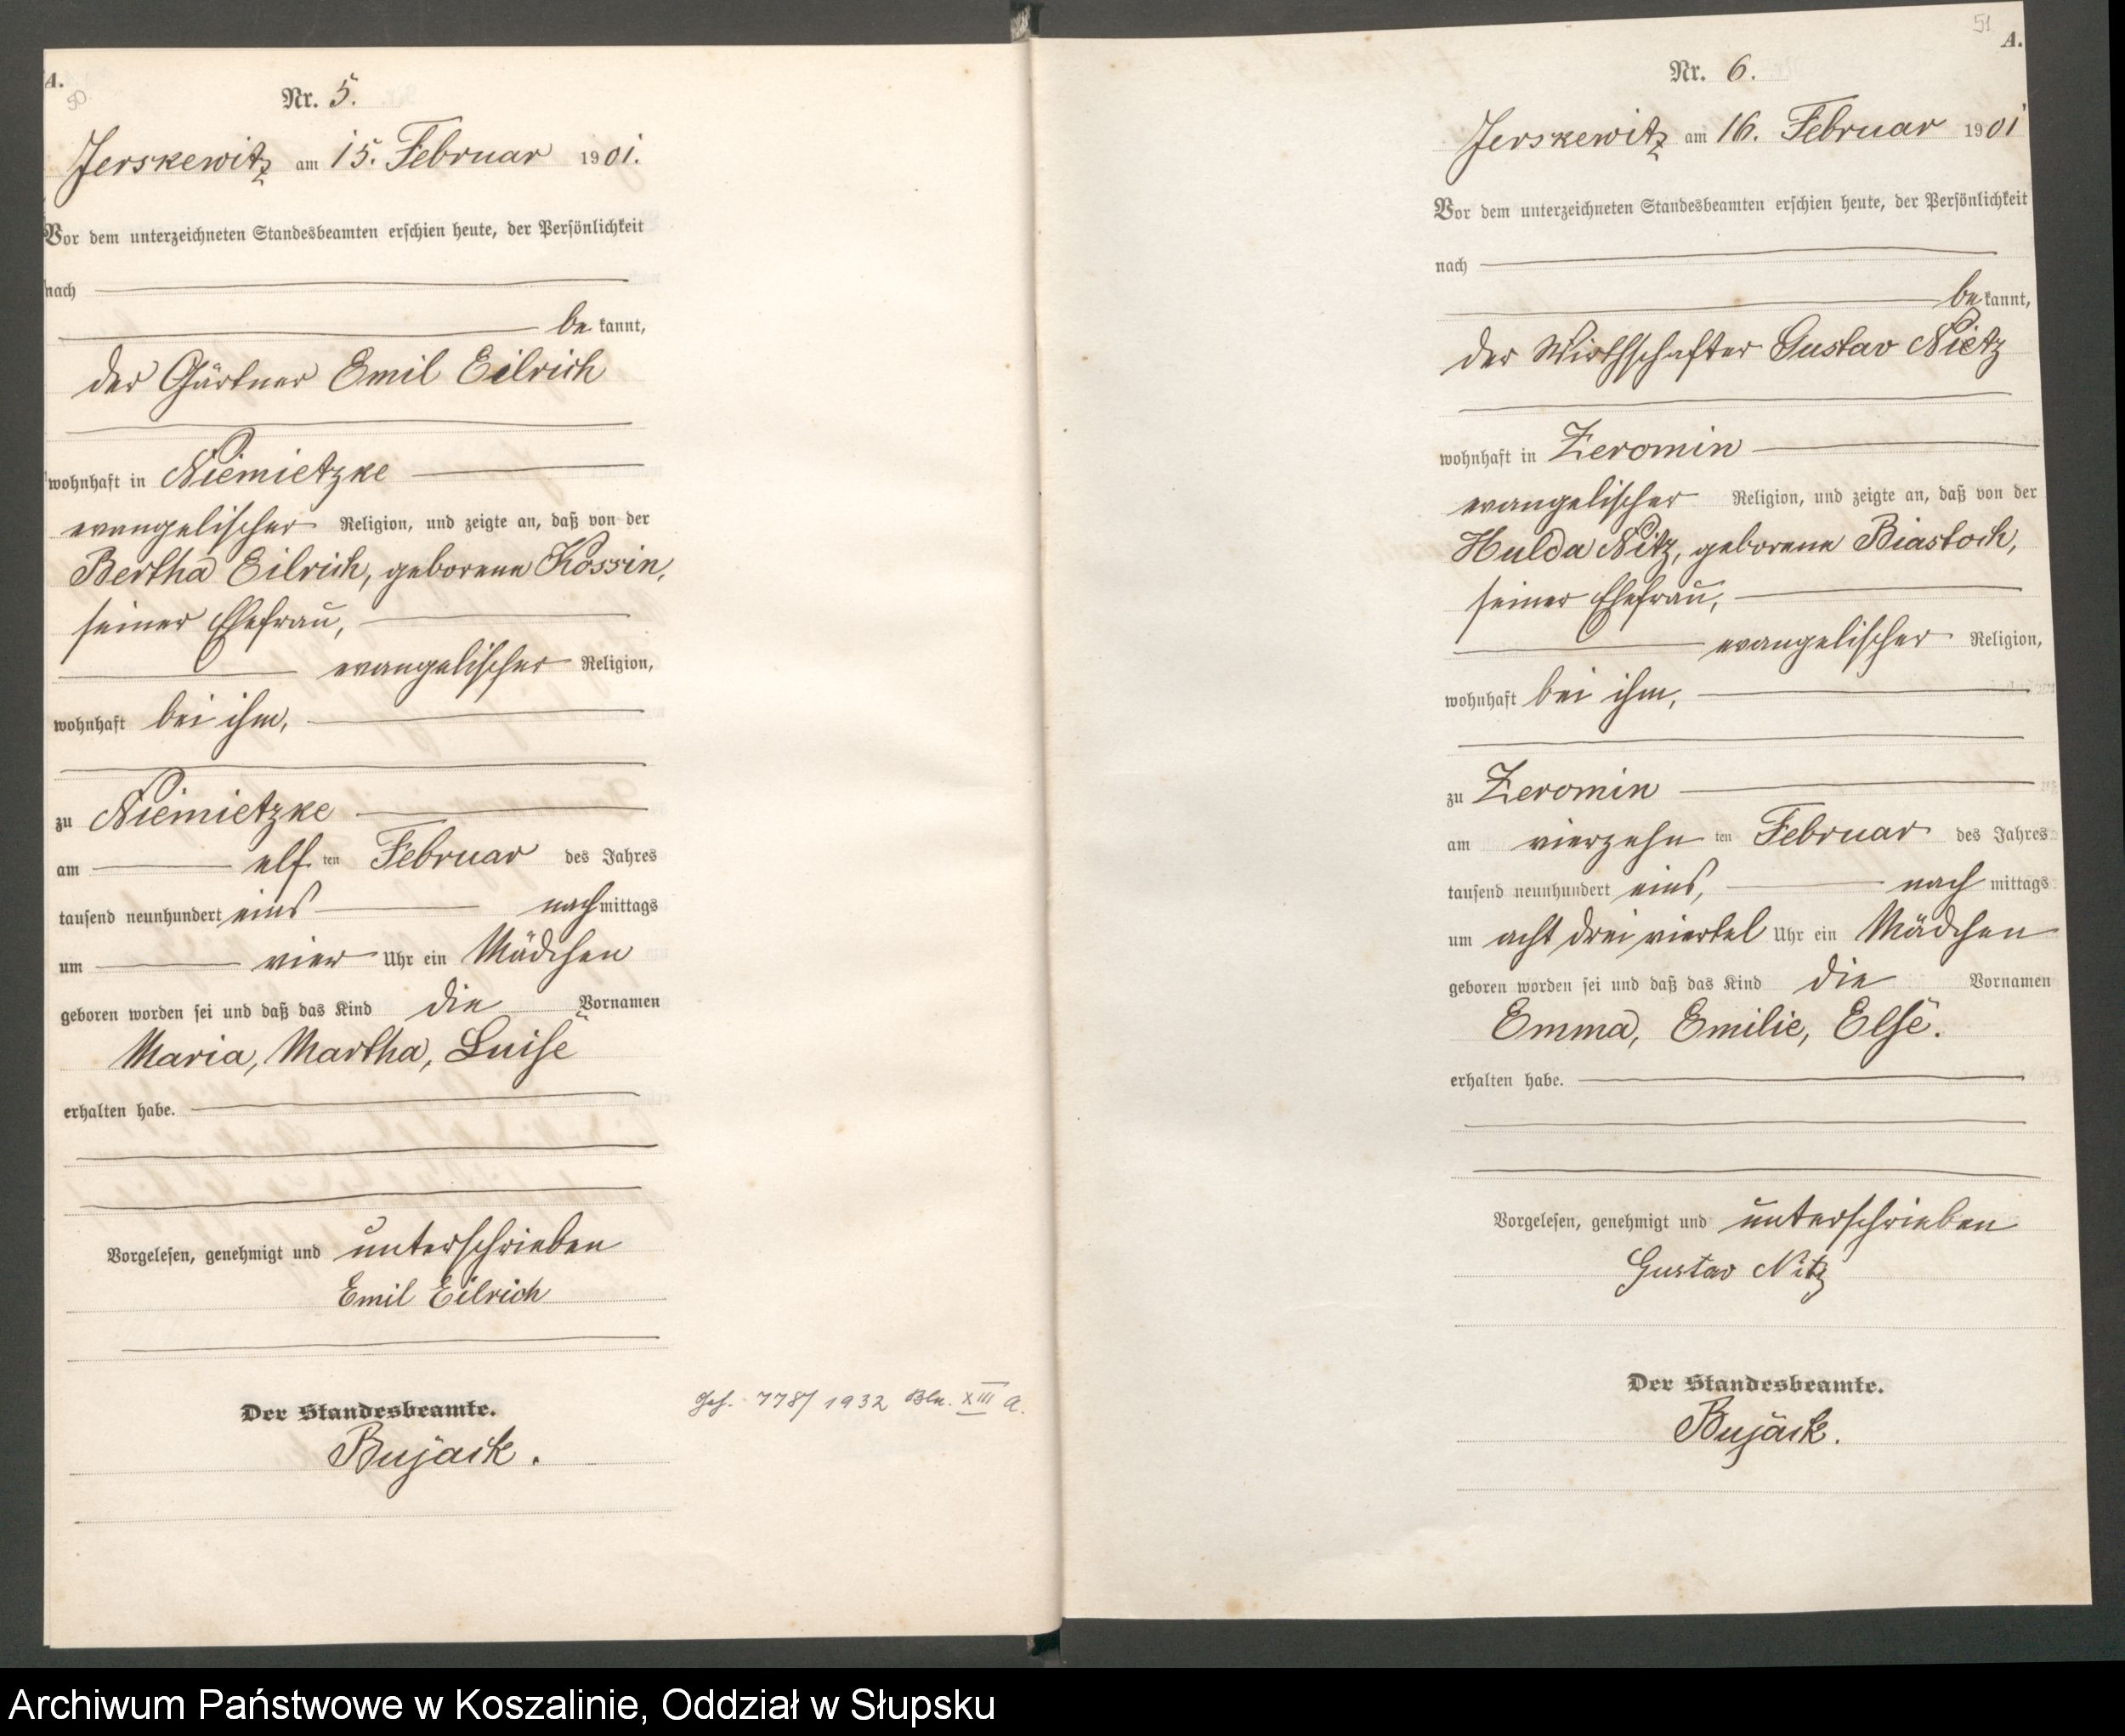 A.
50
Nr. 5.
Jerskewitz am 15. Februar 1901.
Vor dem unterzeichneten Standesbeamten erschien heute, der Persönlichkeit
nach
be kannt,
der Gärtner Emil Eilrich
wohnhaft in Niemietzke
evangelischer Religion, und zeigte an, daß von der
Bertha Eilrich, geborene Kossin,
seiner Ehefrau,
evangelischer Religion,
wohnhaft bei ihm,
zu Niemietzke
am elf ten Februar des Jahres
tausend neunhundert eins nachmittags
um vier Uhr ein Mädchen
geboren worden sei und daß das Kind die Vornamen
Maria, Martha, Luise
erhalten habe.
Vorgelesen, genehmigt und unterschrieben
Emil Eilrich
Der Standesbeamte.
Bujack.
778/1932 Bln. XIII a.
51
A.
Nr. 6.
Jerskewitz am 16. Februar 1901
Vor dem unterzeichneten Standesbeamten erschien heute, der Persönlichkeit
nach
be kannt,
der Wirthschafter Gustav Nietz
wohnhaft in Zeromin
evangelischer Religion, und zeigte an, daß von der
Hulda Nitz, geborene Biastoch,
seiner Ehefrau,
evangelischer Religion,
wohnhaft bei ihm,
zu Zeromin
am vierzehn ten Februar des Jahres
tausend neunhundert eins, nach mittags
um acht drei viertel Uhr ein Mädchen
geboren worden sei und daß das Kind die Vornamen
Emma, Emilie, Else.
erhalten habe.
Vorgelesen, genehmigt und unterschrieben
Gustav Nitz
Der Standesbeamte.
Bujack.
Archiwum Państwowe w Koszalinie, Oddział w Słupsku